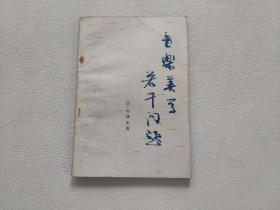 音樂美学
若干问题